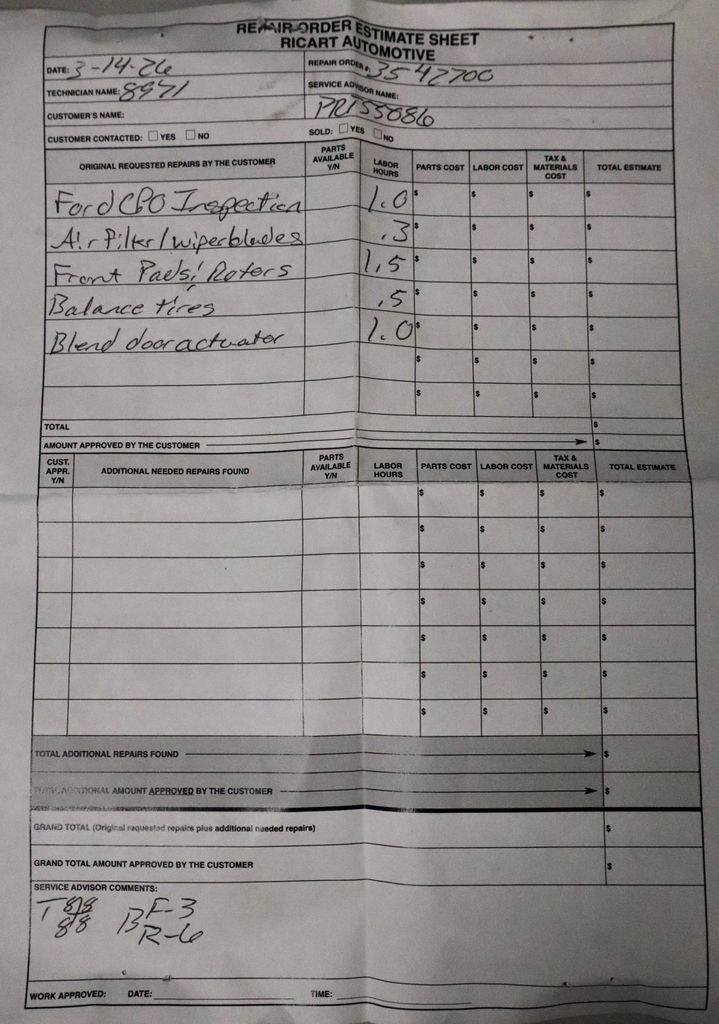 REPAIR ORDER ESTIMATE SHEET
RICART AUTOMOTIVE
DATE: 3-14-26
REPAIR ORDER #: 3542700
TECHNICIAN NAME: 8971
SERVICE ADVISOR NAME:
CUSTOMER'S NAME:
PR155086
CUSTOMER CONTACTED: YES NO
SOLD: YES NO
ORIGINAL REQUESTED REPAIRS BY THE CUSTOMER PARTS AVAILABLE Y/N LABOR HOURS PARTS COST LABOR COST TAX & MATERIALS COST TOTAL ESTIMATE
Ford CPO Inspection 1.0 $ $ $ $
Air Filter/wiperblades .3 $ $ $ $
Front Pads/Rotors 1.5 $ $ $ $
Balance tires .5 $ $ $ $
Blend door actuator 1.0 $ $ $ $
$ $ $ $
$ $ $ $
TOTAL $
AMOUNT APPROVED BY THE CUSTOMER $
CUST. APPR. Y/N ADDITIONAL NEEDED REPAIRS FOUND PARTS AVAILABLE Y/N LABOR HOURS PARTS COST LABOR COST TAX & MATERIALS COST TOTAL ESTIMATE
$ $ $ $
$ $ $ $
$ $ $ $
$ $ $ $
$ $ $ $
$ $ $ $
$ $ $ $
TOTAL ADDITIONAL REPAIRS FOUND $
TOTAL ADDITIONAL AMOUNT APPROVED BY THE CUSTOMER $
GRAND TOTAL (Original requested repairs plus additional needed repairs) $
GRAND TOTAL AMOUNT APPROVED BY THE CUSTOMER $
SERVICE ADVISOR COMMENTS:
T 8/8 B F-3
8/8 R-6
WORK APPROVED: DATE: TIME: